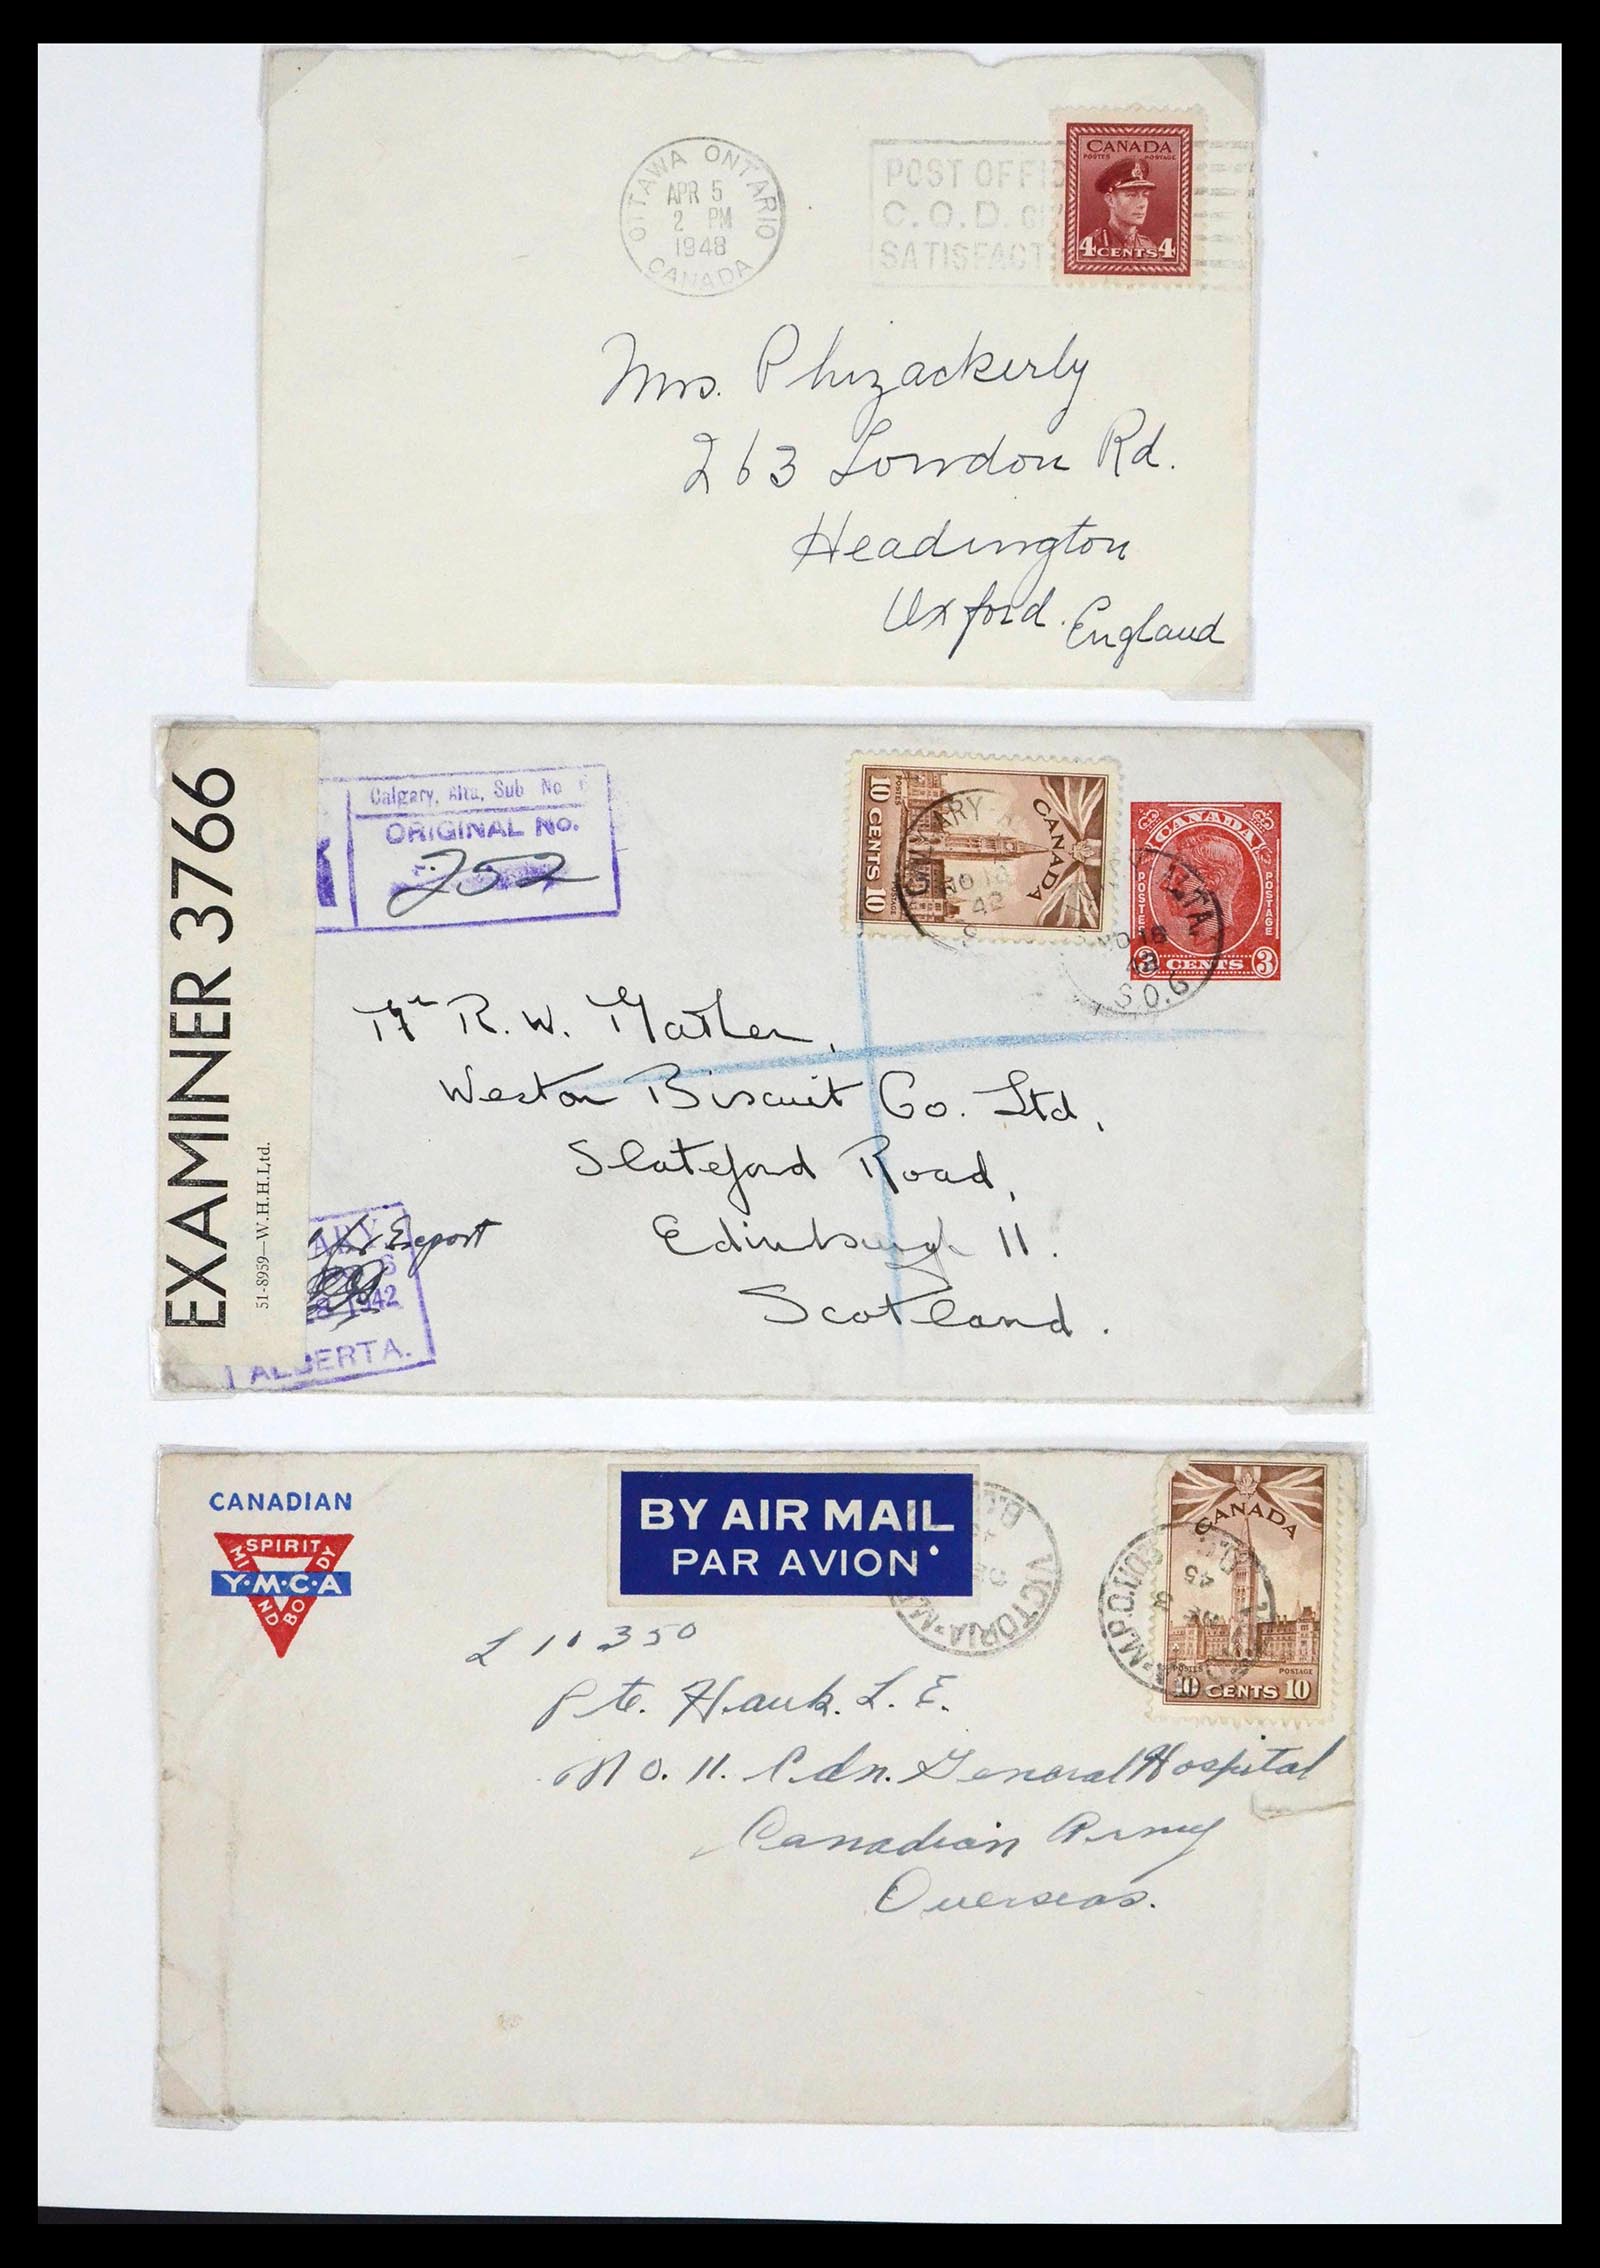 OTTAWA ONTARIO
APR 5
2 PM
1948
CANADA
POST OFFIC
C.O.D.
SATISFACT
CANADA
POSTES POSTAGE
4 CENTS 4
Mrs. Phizackerly
263 London Rd.
Headington
Oxford. England
EXAMINER 3766
51-8959—W.H.H.Ltd.
Calgary, Alta, Sub No
ORIGINAL No.
252
CANADA
POSTES POSTAGE
10 CENTS 10
NO 18
42
CANADA
POSTES POSTAGE
3 CENTS 3
ALTA.
NO 18
42
S.O.6
Mr R. W. Mather,
Weston Biscuit Co. Ltd,
Slateford Road,
Edinburgh 11.
Scotland.
Export
ARY
6
8 1942
ALBERTA.
CANADIAN
SPIRIT
MIND BODY
Y·M·C·A
BY AIR MAIL
PAR AVION
VICTORIA·M.
B.C.
M.P.O.1103
45
CANADA
POSTES POSTAGE
10 CENTS 10
L 10350
Pte. Hauk. L. E.
No. 11. Cdn. General Hospital
Canadian Army
Overseas.